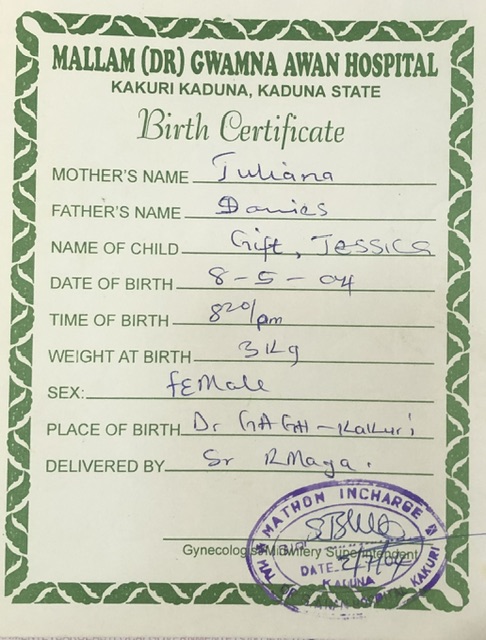 MALLAM (DR) GWAMNA AWAN HOSPITAL
KAKURI KADUNA, KADUNA STATE
Birth Certificate
MOTHER'S NAME Juliana
FATHER'S NAME Danies
NAME OF CHILD Gift, Jessica
DATE OF BIRTH 8-5-04
TIME OF BIRTH 820/pm
WEIGHT AT BIRTH 3Kg
SEX: fEMale
PLACE OF BIRTH Dr GAGH-Kakuri
DELIVERED BY Sr RMaga.
MATHON INCHARGE
Gynecologist/Midwifery Superintendent
DATE 2/7/04
KADUNA
HOSPITAL KAKURI